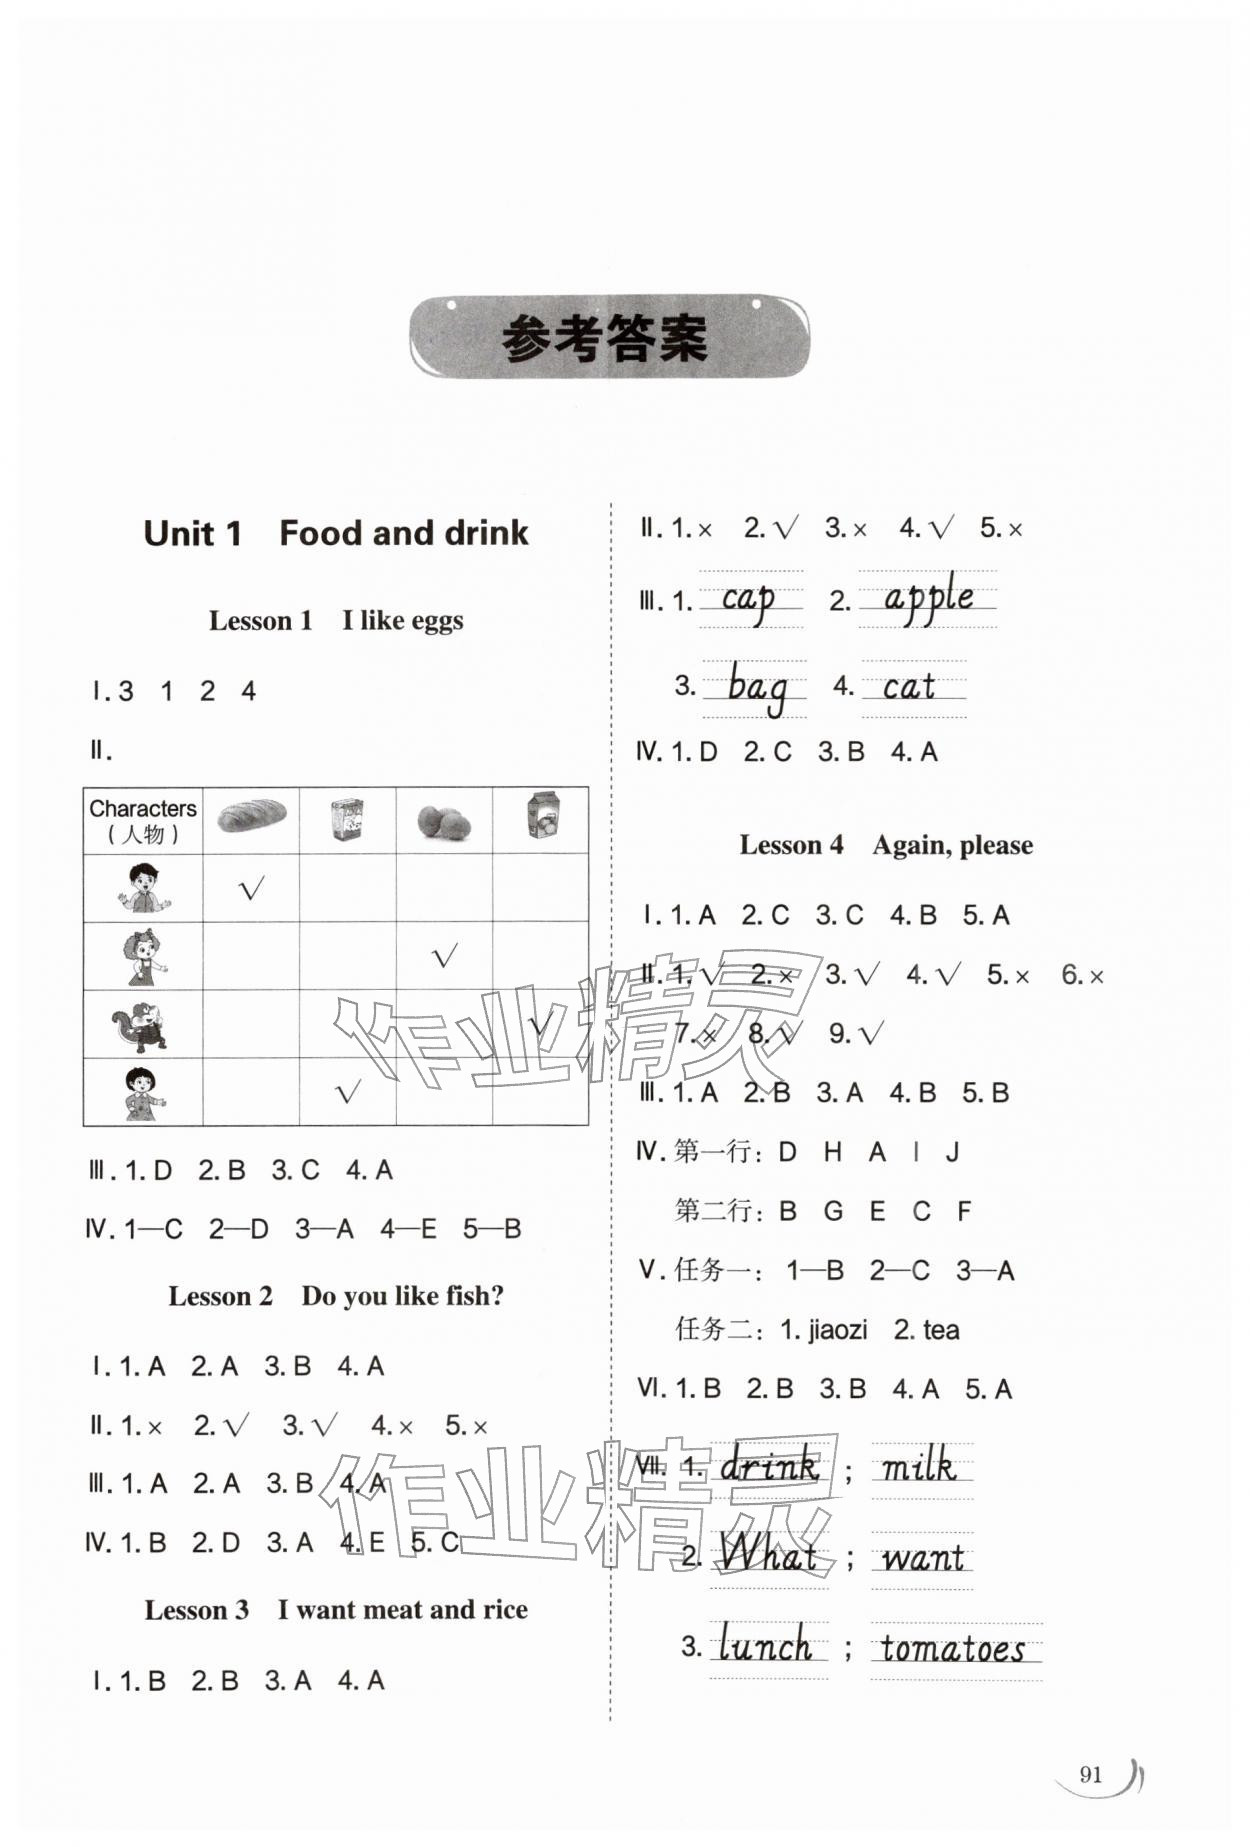 参考答案
Unit 1 Food and drink
Lesson 1 I like eggs
Ⅰ.3 1 2 4
Ⅱ.
Characters
(人物)
√
√
√
√
Ⅲ.1.D 2.B 3.C 4.A
Ⅳ.1—C 2—D 3—A 4—E 5—B
Lesson 2 Do you like fish?
Ⅰ.1.A 2.A 3.B 4.A
Ⅱ.1.× 2.√ 3.√ 4.× 5.×
Ⅲ.1.A 2.A 3.B 4.A
Ⅳ.1.B 2.D 3.A 4.E 5.C
Lesson 3 I want meat and rice
Ⅰ.1.B 2.B 3.A 4.A
Ⅱ.1.× 2.√ 3.× 4.√ 5.×
Ⅲ.1. cap 2. apple
3. bag 4. cat
Ⅳ.1.D 2.C 3.B 4.A
Lesson 4 Again, please
Ⅰ.1.A 2.C 3.C 4.B 5.A
Ⅱ.1.√ 2.× 3.√ 4.√ 5.× 6.×
7.× 8.√ 9.√
Ⅲ.1.A 2.B 3.A 4.B 5.B
Ⅳ.第一行：D H A I J
第二行：B G E C F
Ⅴ.任务一：1—B 2—C 3—A
任务二：1.jiaozi 2.tea
Ⅵ.1.B 2.B 3.B 4.A 5.A
Ⅶ. 1. drink ; milk
2. What ; want
3. lunch ; tomatoes
作业精灵
作业精灵
91